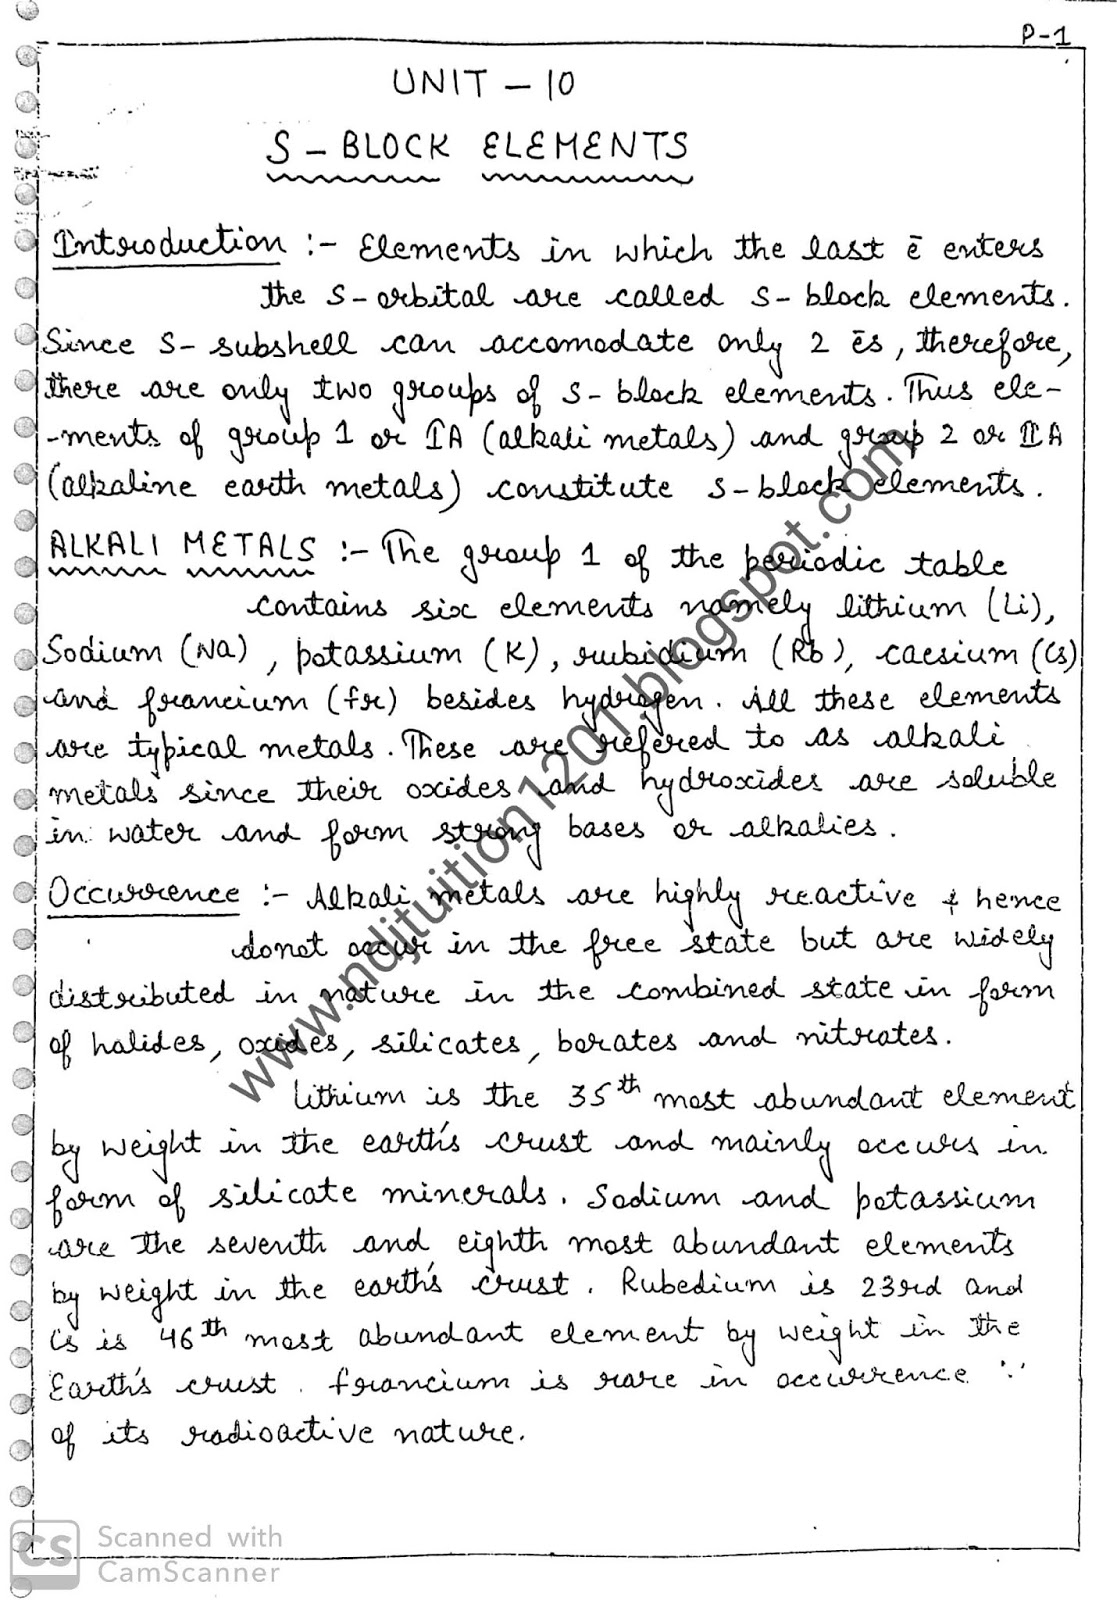 P-1
UNIT - 10
S - BLOCK ELEMENTS
Introduction :- Elements in which the last ē enters
the s-orbital are called s-block elements.
Since s-subshell can accomodate only 2 ēs, therefore,
there are only two groups of s-block elements. Thus ele-
-ments of group 1 or IA (alkali metals) and group 2 or IIA
(alkaline earth metals) constitute s-block elements.
ALKALI METALS :- The group 1 of the periodic table
contains six elements namely lithium (Li),
Sodium (Na), potassium (K), rubidium (Rb), caesium (Cs)
and francium (fr) besides hydrogen. All these elements
are typical metals. These are refered to as alkali
metals since their oxides and hydroxides are soluble
in water and form strong bases or alkalies.
Occurrence :- Alkali metals are highly reactive & hence
donot occur in the free state but are widely
distributed in nature in the combined state in form
of halides, oxides, silicates, borates and nitrates.
Lithium is the 35th most abundant element
by weight in the earth's crust and mainly occurs in
form of silicate minerals. Sodium and potassium
are the seventh and eighth most abundant elements
by weight in the earth's crust. Rubedium is 23rd and
Cs is 46th most abundant element by weight in the
Earth's crust. francium is rare in occurrence ∵
of its radioactive nature.
www.ndjtuition1201.blogspot.com
CS
Scanned with
CamScanner